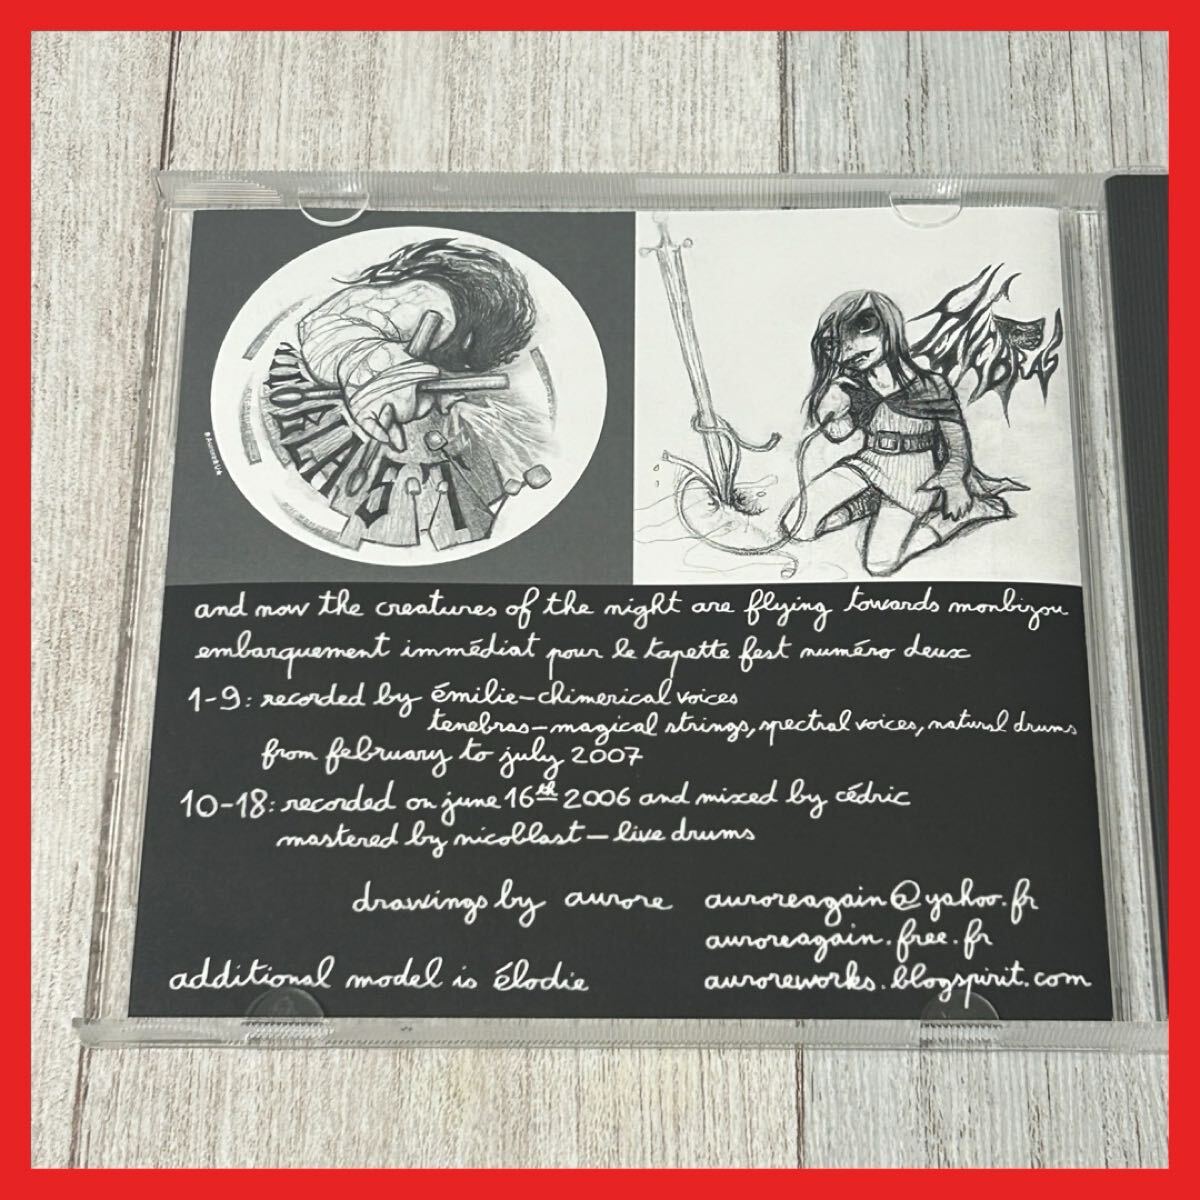 NICOBLAST
★AURORE★
TENEBRAS
and now the creatures of the night are flying towards monbizou
embarquement immédiat pour le tapette fest numéro deux
1-9: recorded by émilie–chimerical voices
tenebras–magical strings, spectral voices, natural drums
from february to july 2007
10-18: recorded on june 16th 2006 and mixed by cédric
mastered by nicoblast – live drums
drawings by aurore auroreagain@yahoo.fr
auroreagain.free.fr
additional model is élodie auroreworks.blogspirit.com